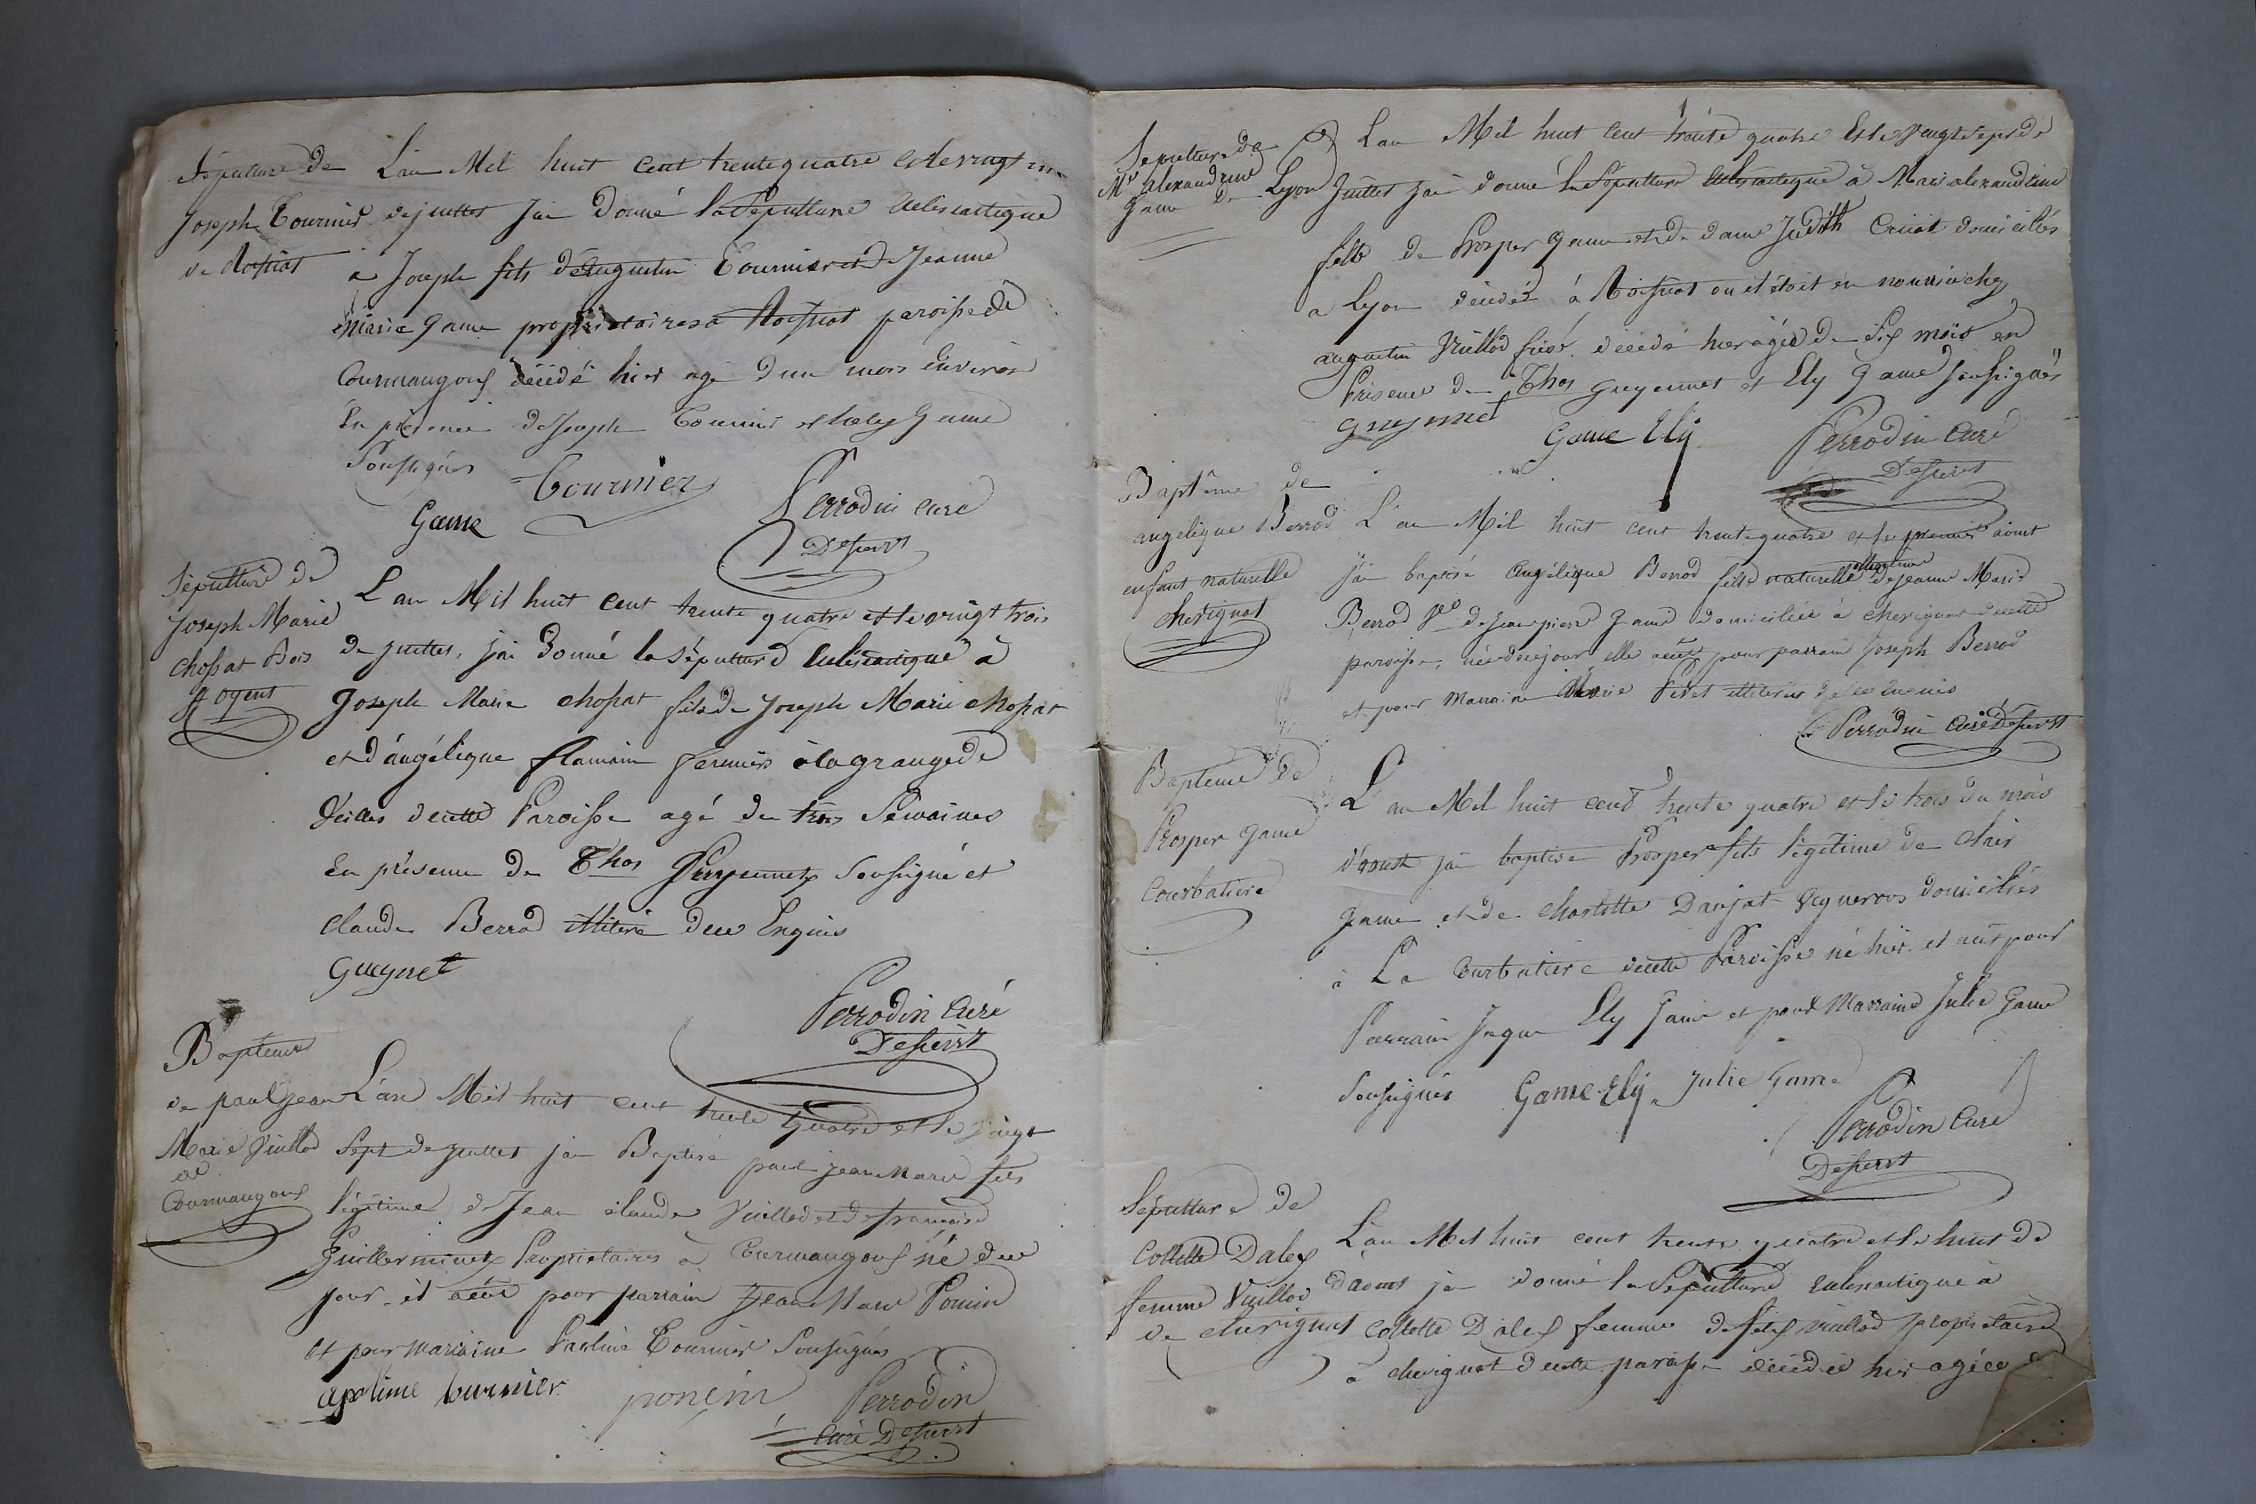 Sépulture de
Joseph Tournier
de Roissiat
L'an Mil huit cent trente quatre et le vingt un
de juillet jai donné la Sépulture Eclesiastique
a Joseph fils d'Augustin Tournier et de Jeanne
Marie Game propriétaires a Roissiat paroisse de
Courmangoux décédé hier agé d'un mois Environ
En présence de Joseph Tournier et hely Game
Soussignés
Tournier
Game
Perrodin curé
Desservt
Sépulture de
Joseph Marie
chossat Bois
L'an Mil huit cent trente quatre et le vingt trois
de juillet, jai donné la sépulture Eclésiastique à
Joseph Marie chossat fils de Joseph Marie chossat
et d'angélique flamain fermiers à la grange de
de cette Paroisse agé de trois Semaines
En présence de Thos Guyennet Soussigné et
Claude Berrod illitéré de ce Enquis
Gueynet
Perrodin Curé
Desservt
Baptême
de paul jean
Marie Vuillod
de
Courmangoux
L'an Mil huit cent trente quatre et le vingt
Sept de juillet jai Baptisé paul jean Marie fils
légitime de Jean claude Vuillod et de françoise
Guillerminet Propriétaires à Courmangoux né de ce
jour, il a eût pour parrain Jean Marie Poncin
Et pour marraine Pauline Tournier Soussignés
turnier
poncin
Perrodin
Curé Desservt
Sépulture de
Me Alexandrine
Game de Lyon
L'an Mil huit cent trente quatre Et le Vengt Sept de
Juillet jai donné la Sépulture Eclésiastique à Marie alexandrine
fille de Prosper Game et de dame Judith Cruiat domiciliés
a Lyon décédée à Roissiat ou il étoit en nourrice chez
augustin Vuillod décédé hier agée de Six mois en
Présence de Thos Gueyennet et Ely Game Soussignés
gueynnet
Game Ely
Perrodin Curé
Desservt
Baptême de
angelique Berrod
enfant naturelle
chevignat
L'an Mil huit cent trente quatre et le premier aoust
j'ai baptisé Angélique Berrod fille naturelle de jeanne Marie
Berrod Ve de Jean pierre Game domiciliée à chevignat de cette
paroisse, née de ce jour elle a eût pour parrain Joseph Berrod
et pour Marraine Marie illitérés de ce Enquis
Perrodin Curé Desservt
Baptême de
Prosper Game
Courbatière
L'an Mil huit cent trente quatre et le trois du mois
d'aoust jai baptisé Prosper fils légitime de Clair
Game et de charlotte Danjat Vignerons domiciliés
à La Courbatière de cette Paroisse né hier et a eût pour
Parrain Jaque Ely Game et pour Marraine Julie Game
Soussignés Game Ely Julie Game
Perrodin Curé
Desservt
Sépulture de
Collette Dalex
femme Vuillod
de chevignat
L'an Mil huit cent trente quatre et le huit de
d'aoust jai donné la Sépulture Eclesiastique à
Collette Dalex femme de félix Vuillod propriétaire
à chevignat de cette paroisse décédée hier agée de